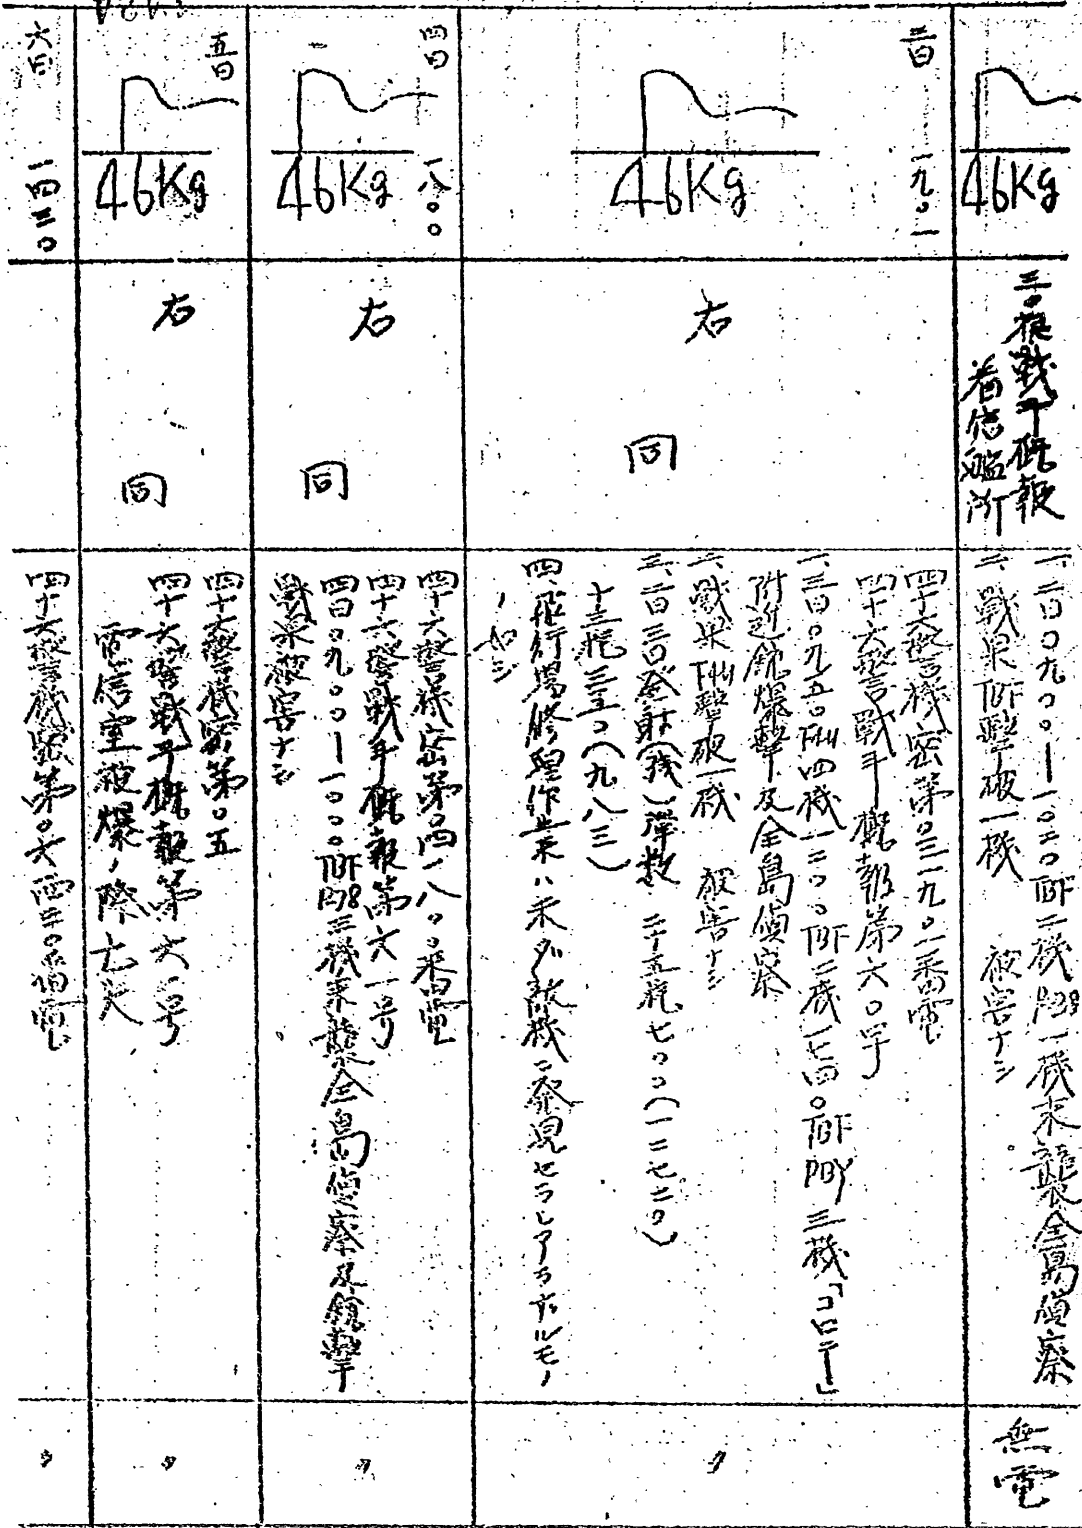 46Kg
三〇根戦斗概報
着信艦所
一、二日〇九〇〇—一〇二〇TBF二機P38一機来襲全島偵察
二、戦果TBF撃破一機 被害ナシ
無電
三日 一九〇一
46Kg
右同
四十六警機密第〇三一九〇一番電
四十六警戦斗概報第六〇号
一、三日〇九五〇F4U四機一二〇〇TBF二機一七四〇TBF PBY三機「コロニー」
附近銃爆撃及全島偵察
二、戦果F4U撃破一機 被害ナシ
三、二日三日発射(残)弾数 二十五粍七〇〇(一二七二〇)
十三粍三五〇(九八三)
四、飛行場修理作業ハ未ダ敵機ニ発見セラレアラザルモノ
ノ如シ
〃
四日 一八〇〇
46Kg
右同
四十六警機密第〇四一八〇〇番電
四十六警戦斗概報第六一号
四日〇九〇〇—一〇〇〇TBF P38三機来襲全島偵察及銃撃
戦果被害ナシ
〃
五日
46Kg
右同
四十六警機密第〇五
四十六警戦斗概報第六二号
電信室被爆ノ際亡失
〃
六日 一四三〇
四十六警機密第〇六一四三〇番電
〃